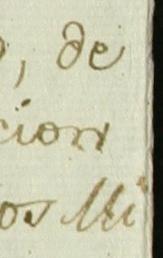 , de
cion
os Mi